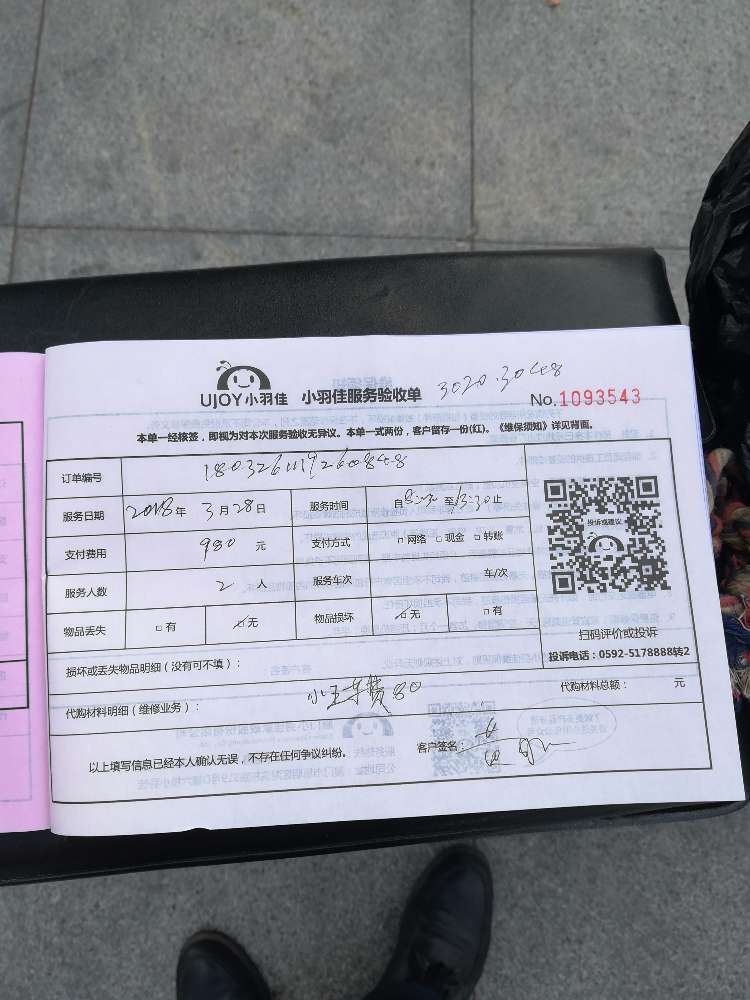 UJOY小羽佳 小羽佳服务验收单 3020.3048
No.1093543
本单一经核签，即视为对本次服务验收无异议。本单一式两份，客户留存一份(红)。《维保须知》详见背面。
订单编号
服务日期 2018年 3月28日 服务时间 自8:30至13:30止
支付费用 980 元 支付方式 □网络 □现金 □转账
服务人数 2 人 服务车次 车/次
物品丢失 □有 ☑无 物品损坏 ☑无 □有
投诉或建议
扫码评价或投诉
投诉电话：0592-5178888转2
损坏或丢失物品明细（没有可不填）：
代购材料明细（维修业务）： 小王车费80 代购材料总额： 元
以上填写信息已经本人确认无误，不存在任何争议纠纷。 客户签名：